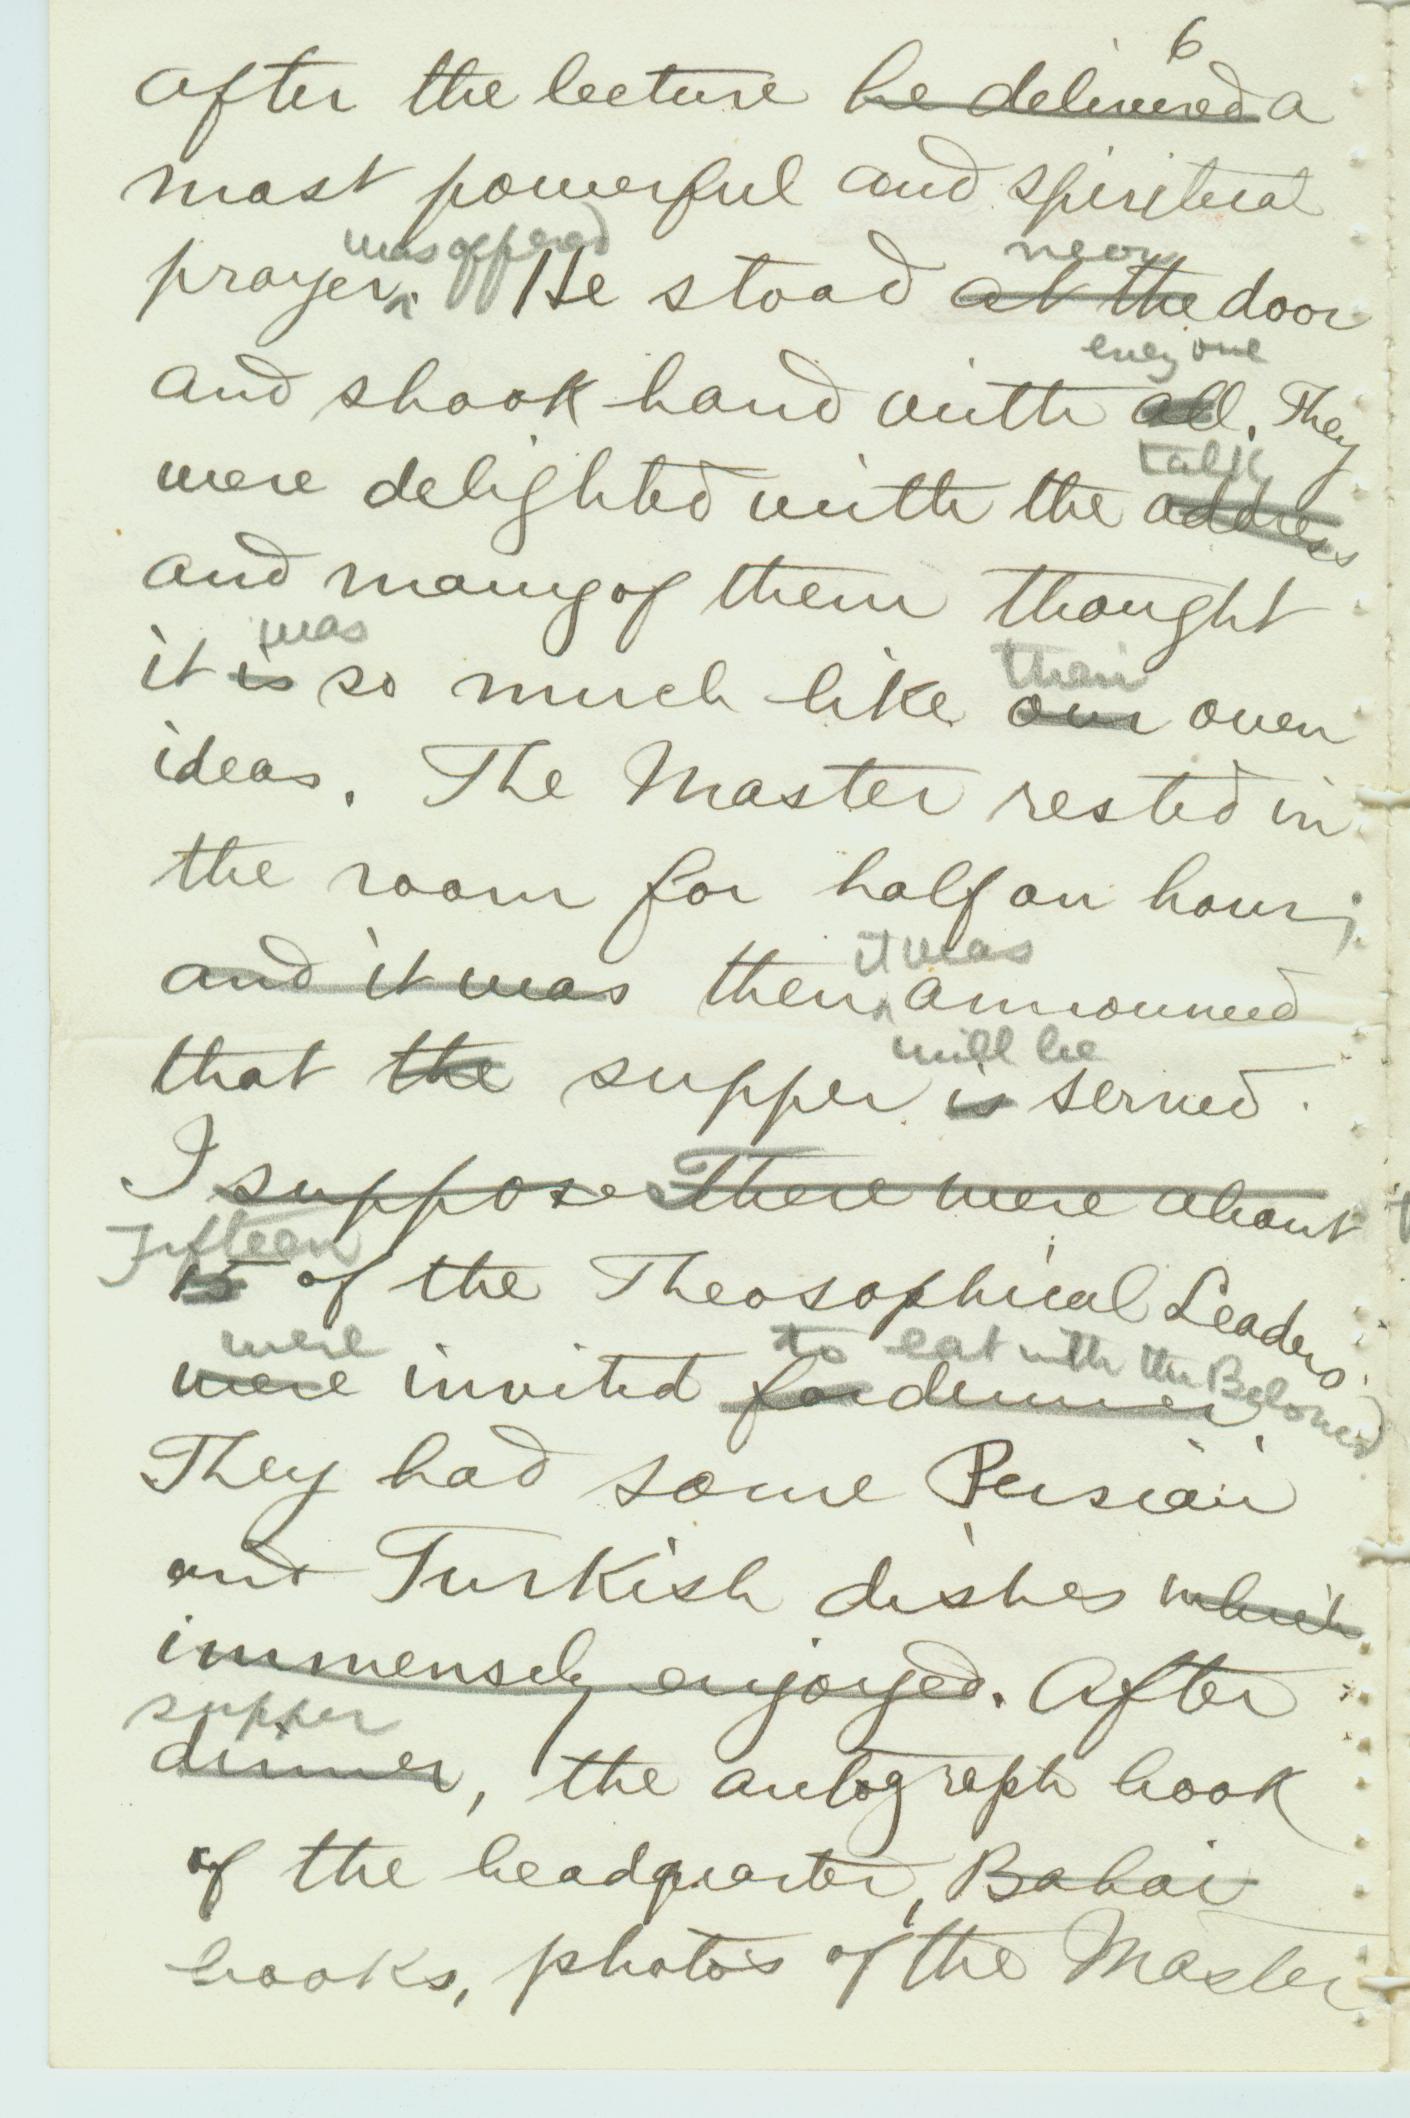 6
after the lecture he delivered a
most powerful and spiritual
was offered
prayer. He stood at the door
near
and shook hand with all. They
every one
were delighted with the address
talk
and many of them thought
was
it is so much like our own
their
ideas. The Master rested in
the room for half an hour;
and it was then announced
it was
that the supper is served.
will be
I suppose There were about
Fifteen
15 of the Theosophical Leaders
were
were invited for dinner
to eat with the Beloved
They had some Persian
and Turkish dishes which
immensely enjoyed. After
supper
dinner, the autograph book
of the headquarter, Bahai
books, photos of the Master